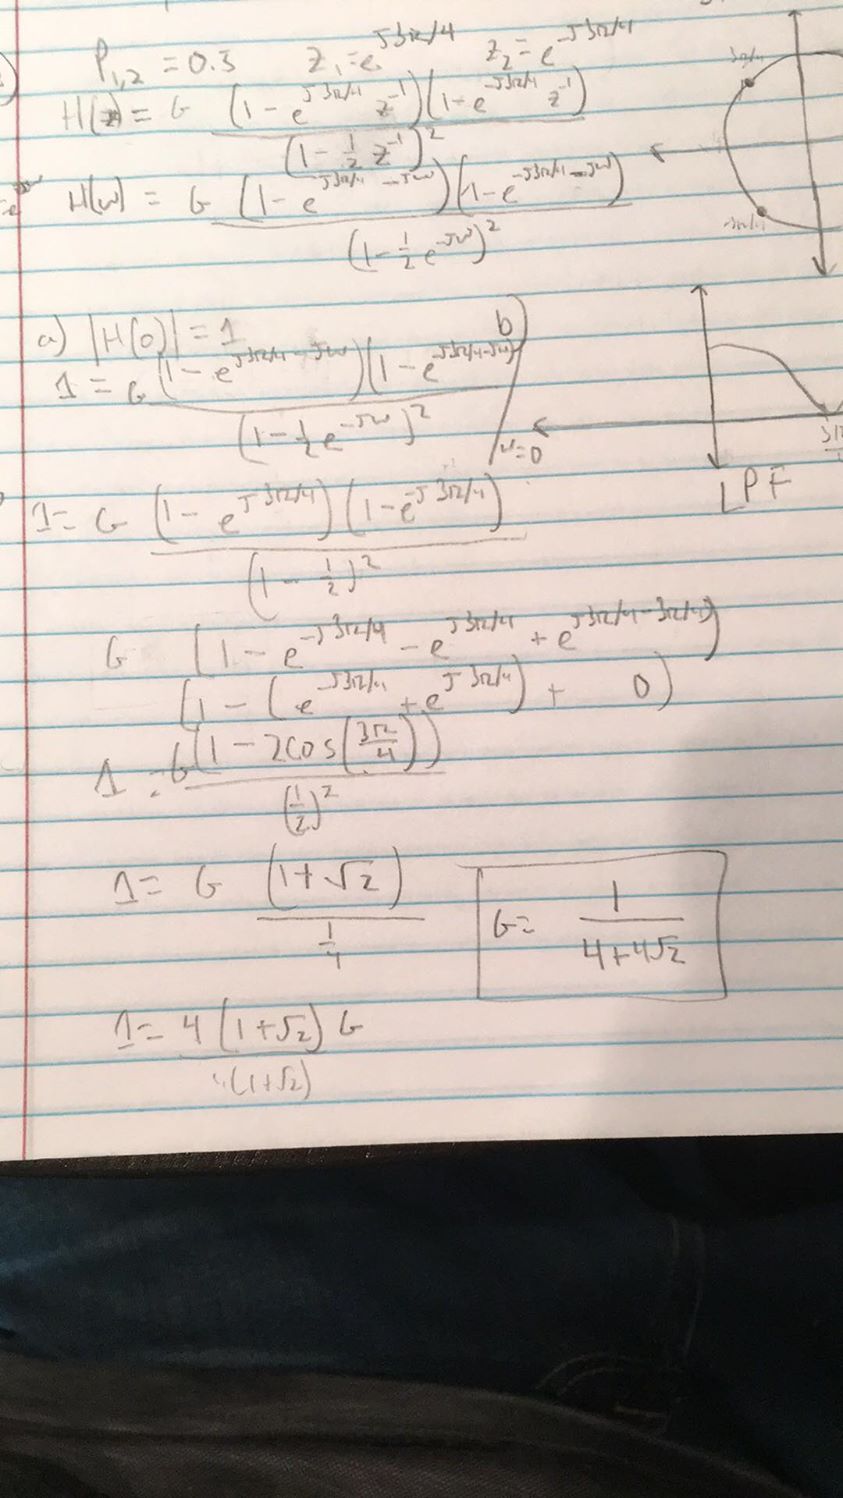 P₁,₂ = 0.5 z₁ = e^{j3π/4} z₂ = e^{-j3π/4}
H(z) = G (1 - e^{j3π/4} z^{-1})(1 - e^{-j3π/4} z^{-1})
(1 - 1/2 z^{-1})²
H(ω) = G (1 - e^{j3π/4 - jω})(1 - e^{-j3π/4 - jω})
(1 - 1/2 e^{-jω})²
3π/4
-3π/4
a) |H(0)| = 1
1 = G (1 - e^{j3π/4 - jω})(1 - e^{-j3π/4 - jω})
(1 - 1/2 e^{-jω})²
ω=0
b)
LPF
1 = G (1 - e^{j3π/4})(1 - e^{-j3π/4})
(1 - 1/2)²
G (1 - e^{-j3π/4} - e^{j3π/4} + e^{j3π/4 - 3π/4})
(1 - (e^{-j3π/4} + e^{j3π/4}) + 0)
1 = G(1 - 2cos(3π/4))
(1/2)²
1 = G (1+√2)
1/4
G = 1/(4+4√2)
1 = 4(1+√2) G
4(1+√2)